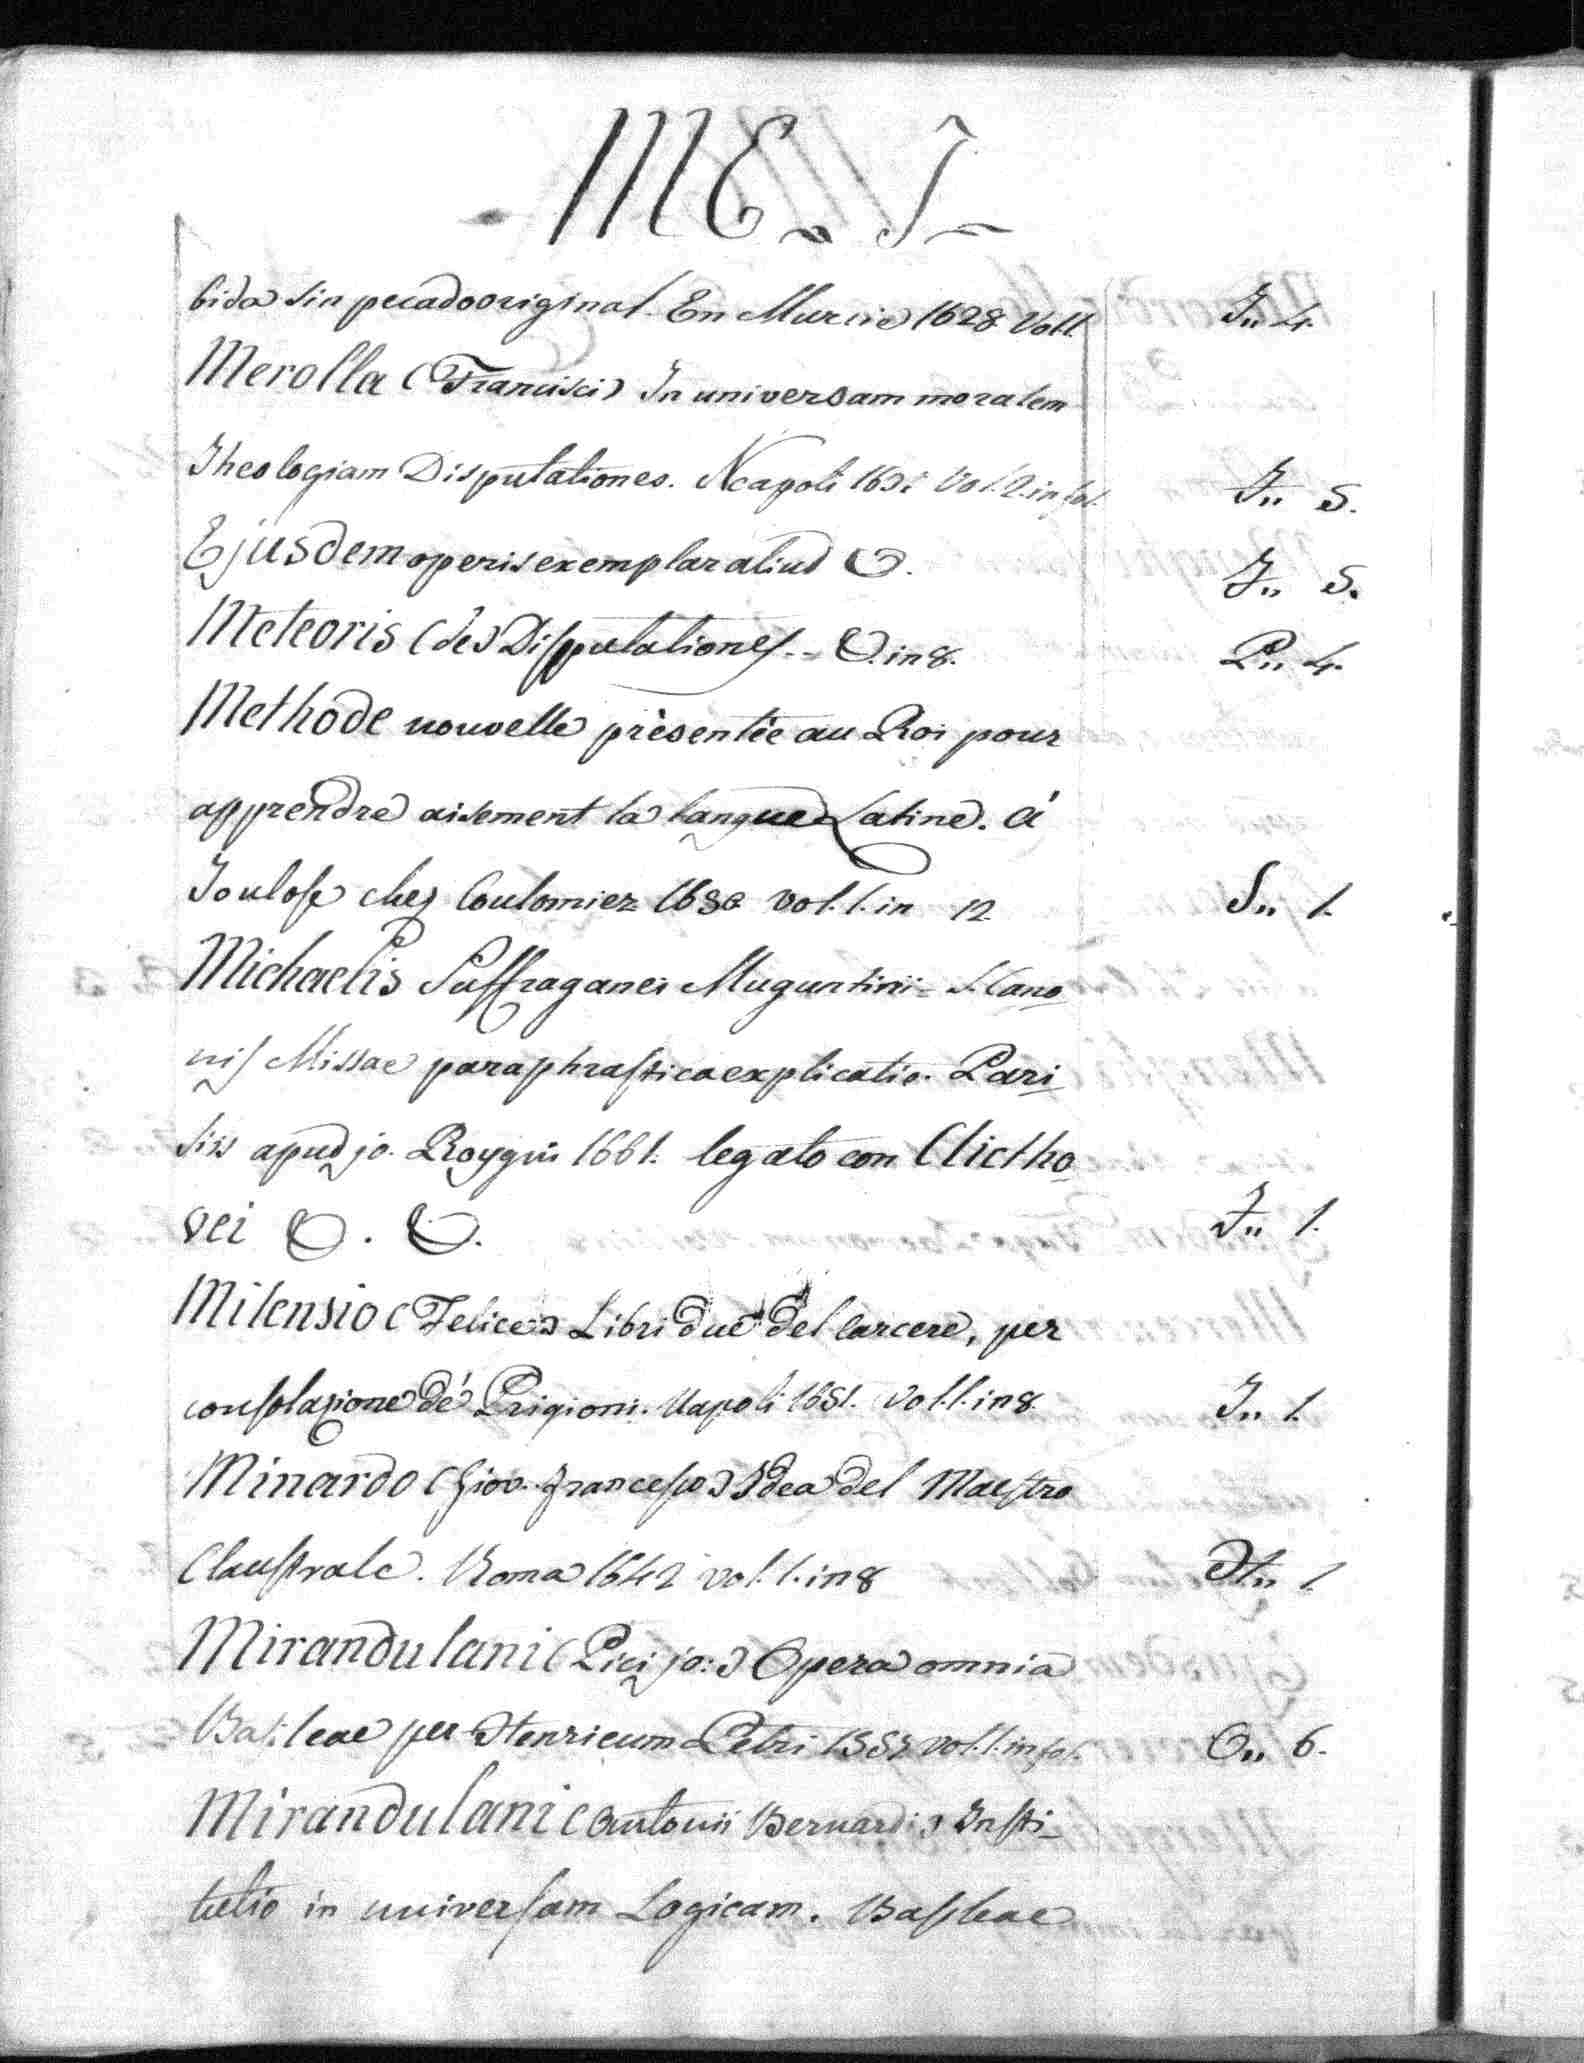 ME. I
bida sin pecado original. En Murcia 1628 Vol.1. I,, 4.
Merolla (Francisci) In universam moralem
Theologiam Disputationes. Neapoli Vol.2.in fol. I,, 5.
Ejusdem operis exemplar aliud I,, 5.
Meteoris (de) Disputationes in 8. P,, 4.
Methode nouvelle présentée au Roi pour
apprendre aisement la langue Latine. à
Toulose chez Coulomiez vol.1.in 12 S,, 1.
Michaelis Suffraganei Muguntinii S. Cano_
nis Missae paraphrastica explicatio. Pari_
siis apud jo. legato con Clictho_
vei I,, 1.
Milensio (Felice) Libri due del Carcere, per
consolazione de' Prigioni. Napoli vol.1.in 8. I,, 1.
Minardo (Giov. Francesco) Idea del Maestro
Claustrale. Roma 1642 vol.1.in 8 H,, 1
Mirandulani (Pici jo:) Opera omnia
Basileae per Henricum Petri vol.1.in fol. O,, 6.
Mirandulani (Antonii Bernardi) Insti_
tutio in universam Logicam. Basileae